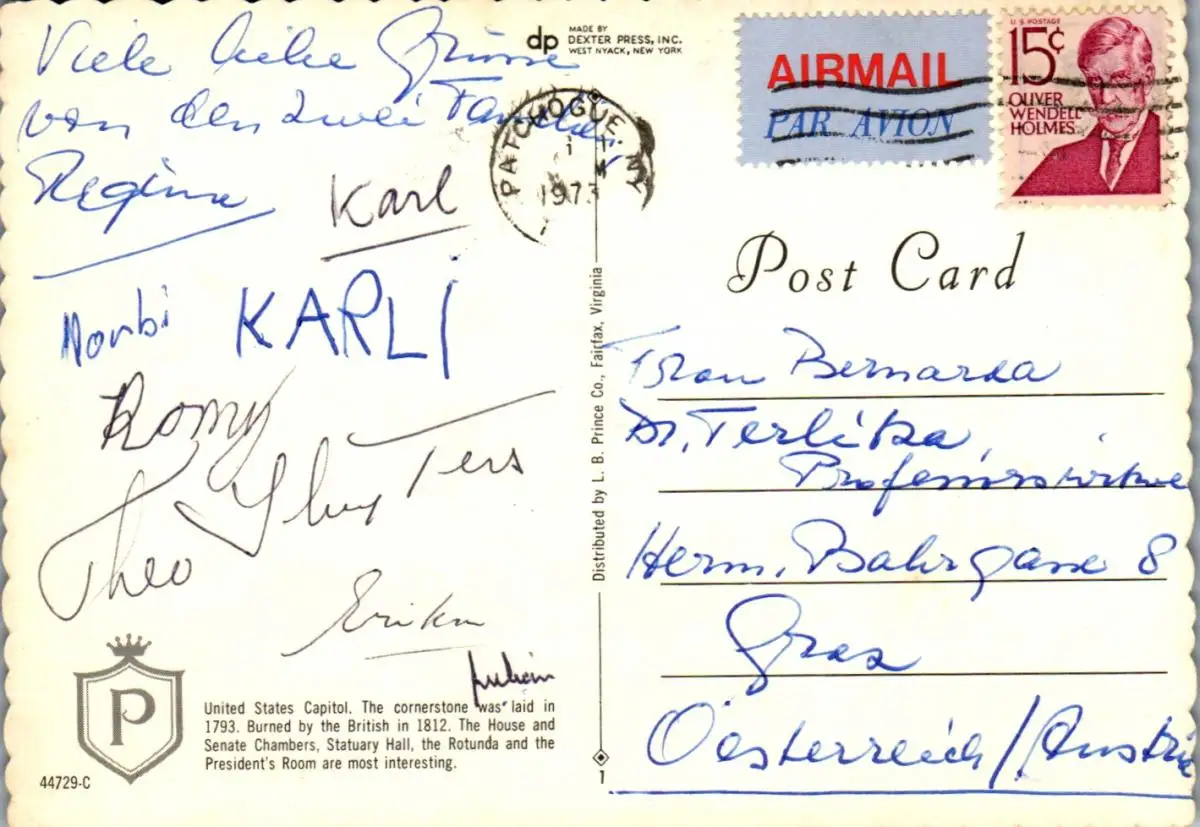 Viele liebe Grüsse
von den zwei Familien
Regina
Karl
Norbi
KARLI
Romy
Theo
Ters
Erika
MADE BY
dp DEXTER PRESS, INC.
WEST NYACK, NEW YORK
PATCHOGUE, NY
1973
AIRMAIL
PAR AVION
U.S. POSTAGE
15¢
OLIVER
WENDELL
HOLMES
Post Card
Distributed by L. B. Prince Co., Fairfax, Virginia
Bernarda
Dr. Terlitza,
Herm. Bahrgasse 8
Graz
Oesterreich/Austria
P
United States Capitol. The cornerstone was laid in
1793. Burned by the British in 1812. The House and
Senate Chambers, Statuary Hall, the Rotunda and the
President's Room are most interesting.
44729-C
1